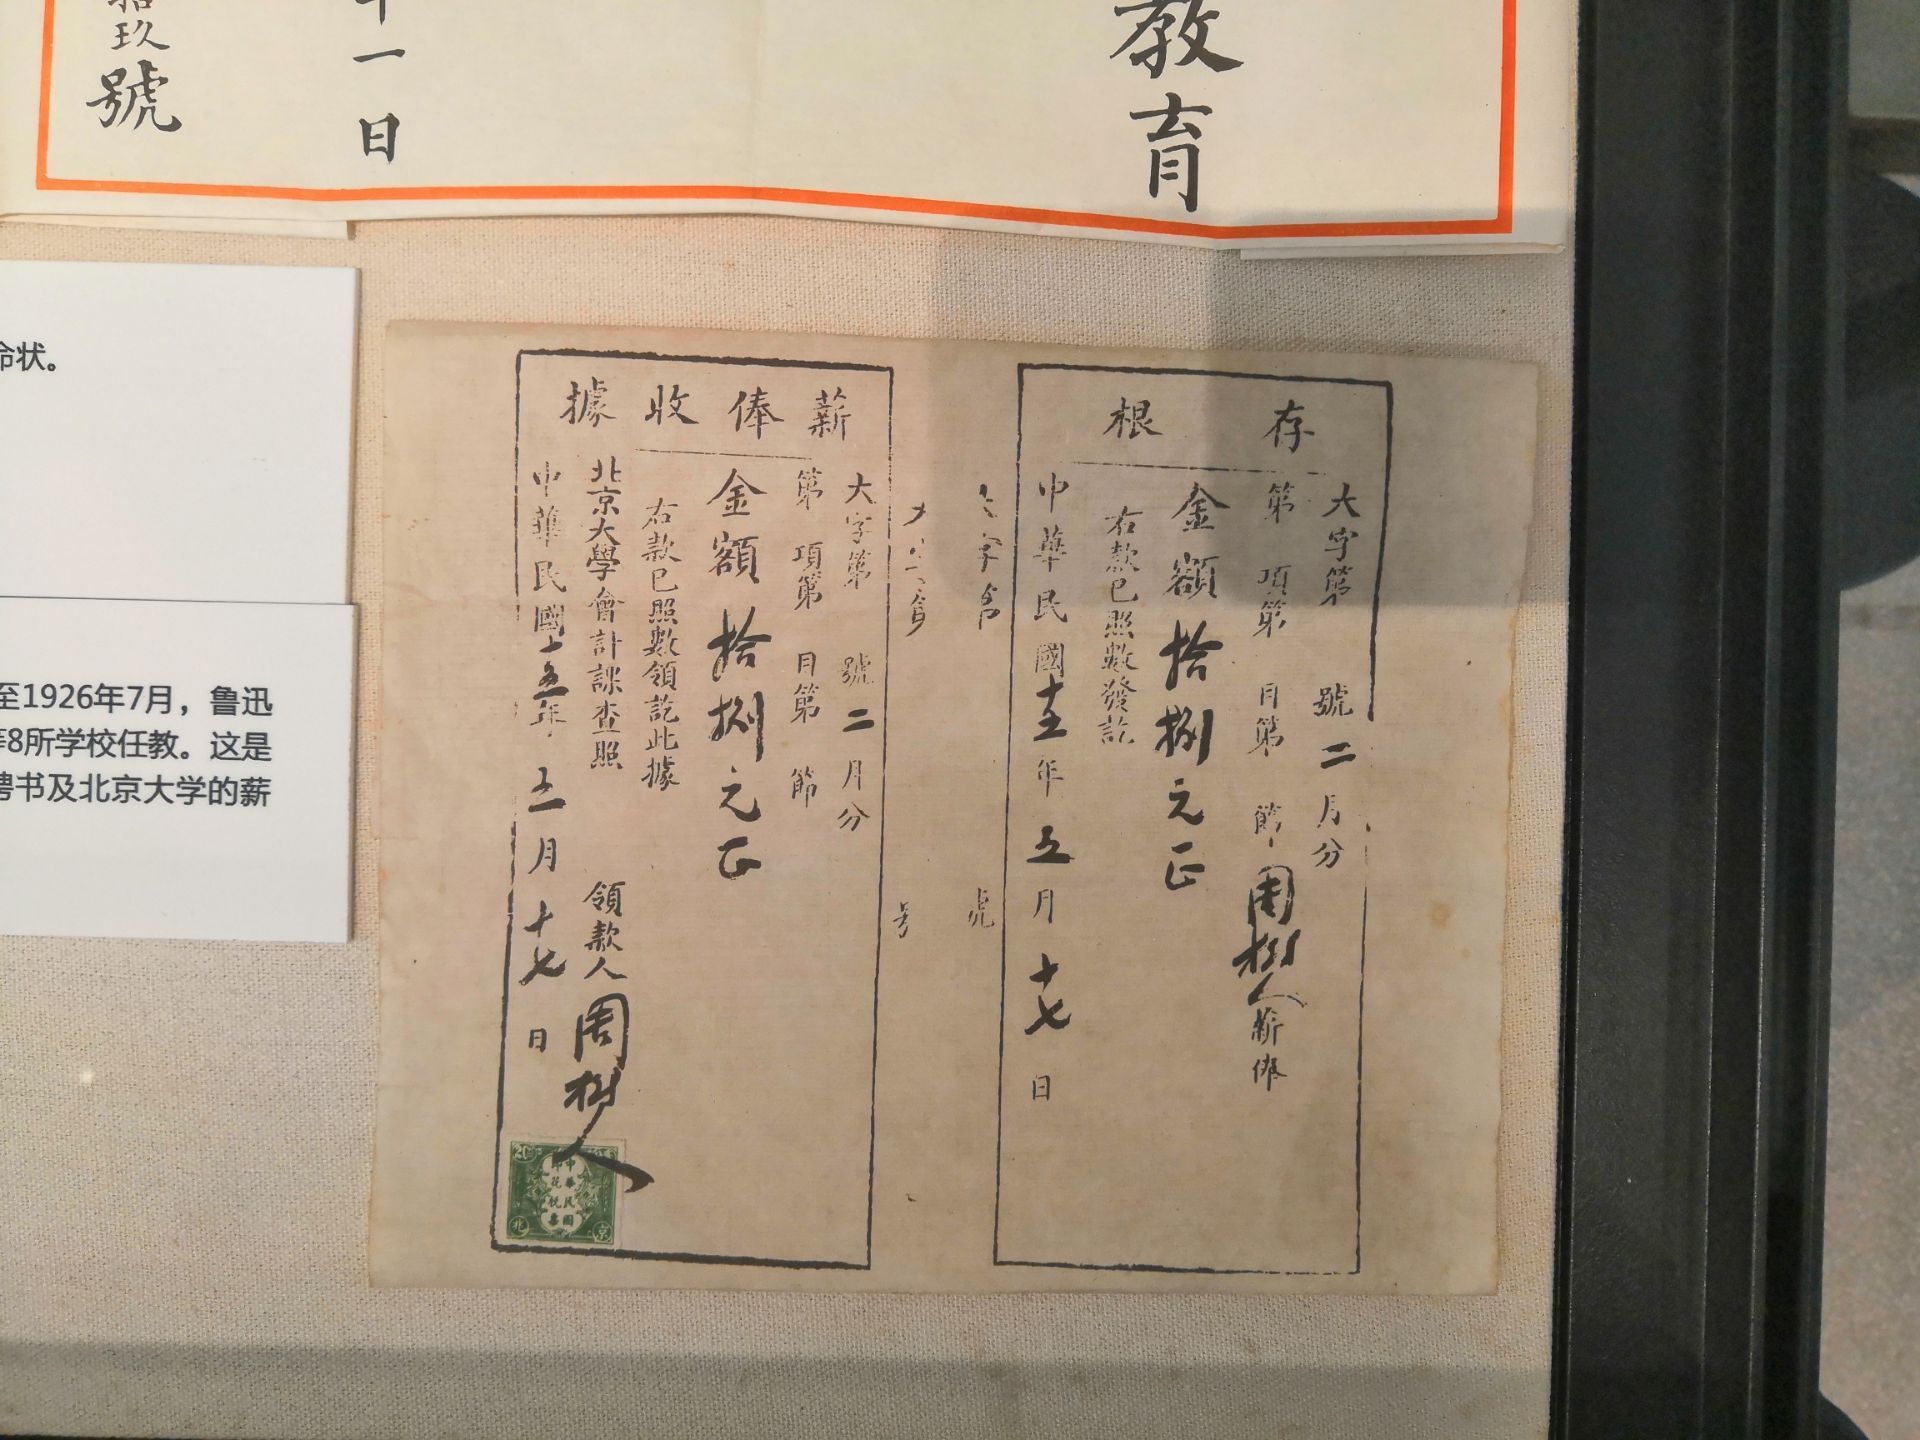 教育
十一日
拾玖號
命状。
至1926年7月，鲁迅
等8所学校任教。这是
聘书及北京大学的薪
存根
大字第 號二月分
第 項第 目第 節周樹人薪俸
金額拾捌元正
右款已照數發訖
中華民國十五年五月十七日
薪俸收據
大字第 號二月分
第 項第 目第 節
金額拾捌元正
右款已照數領訖此據
北京大學會計課查照 領款人周樹人
中華民國十五年五月十七日
20
中華民國
印花稅票
北京